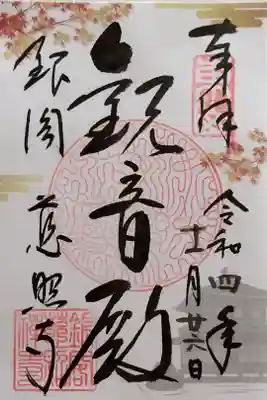 奉拝
令和四年
十一月廿六日
観音殿
銀閣
慈照寺